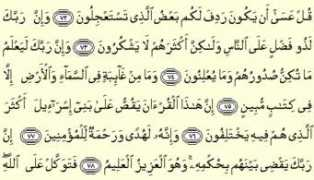 قُلْ عَسَىٰٓ أَن يَكُونَ رَدِفَ لَكُم بَعْضُ ٱلَّذِى تَسْتَعْجِلُونَ ٧٢ وَإِنَّ رَبَّكَ
لَذُو فَضْلٍ عَلَى ٱلنَّاسِ وَلَـٰكِنَّ أَكْثَرَهُمْ لَا يَشْكُرُونَ ٧٣ وَإِنَّ رَبَّكَ لَيَعْلَمُ
مَا تُكِنُّ صُدُورُهُمْ وَمَا يُعْلِنُونَ ٧٤ وَمَا مِنْ غَآئِبَةٍ فِى ٱلسَّمَآءِ وَٱلْأَرْضِ إِلَّا
فِى كِتَـٰبٍ مُّبِينٍ ٧٥ إِنَّ هَـٰذَا ٱلْقُرْءَانَ يَقُصُّ عَلَىٰ بَنِىٓ إِسْرَٰٓءِيلَ أَكْثَرَ
ٱلَّذِى هُمْ فِيهِ يَخْتَلِفُونَ ٧٦ وَإِنَّهُۥ لَهُدًى وَرَحْمَةٌ لِّلْمُؤْمِنِينَ ٧٧ إِنَّ
رَبَّكَ يَقْضِى بَيْنَهُم بِحُكْمِهِۦ ۚ وَهُوَ ٱلْعَزِيزُ ٱلْعَلِيمُ ٧٨ فَتَوَكَّلْ عَلَى ٱللَّهِ ۖ